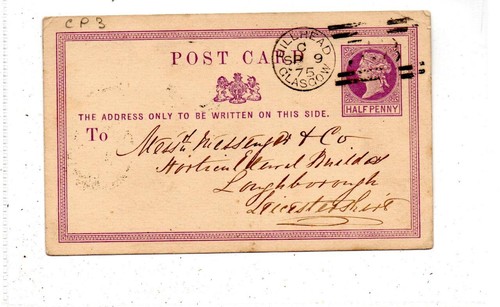 CP3
POST CARD
HILLHEAD
C
SP 9
75
GLASGOW
HALF PENNY
THE ADDRESS ONLY TO BE WRITTEN ON THIS SIDE.
To
Messrs Messenger & Co
Horticultural Builders
Loughborough
Leicestershire